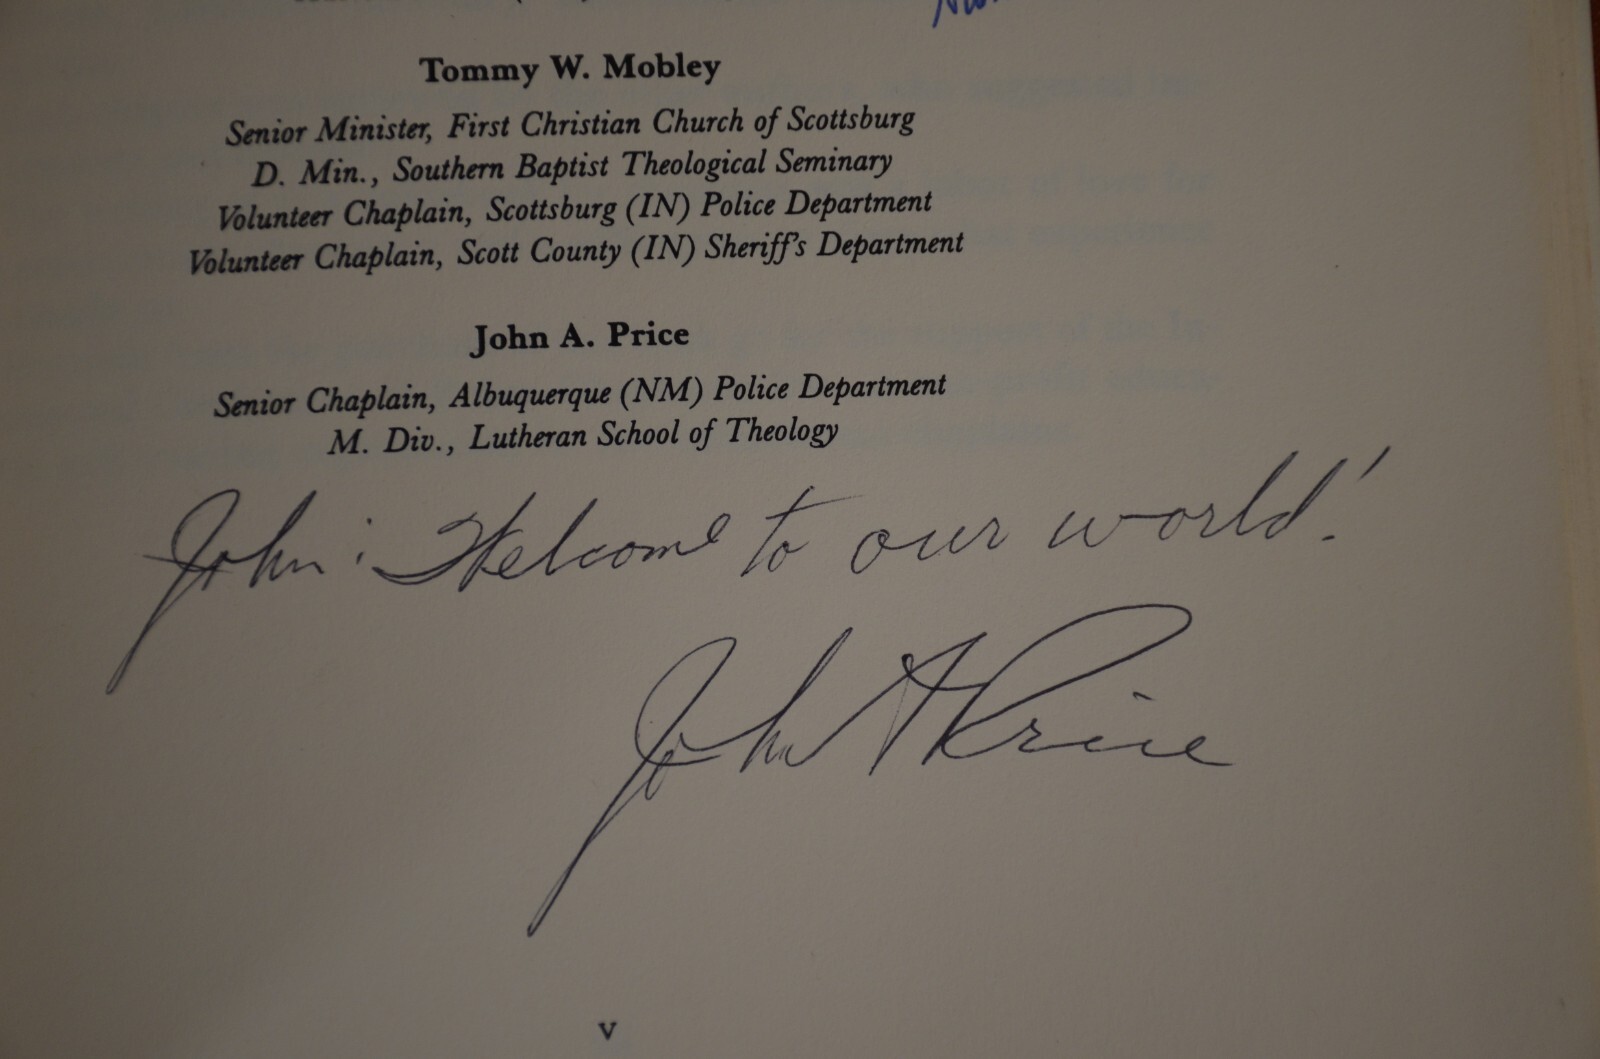 Tommy W. Mobley
Senior Minister, First Christian Church of Scottsburg
D. Min., Southern Baptist Theological Seminary
Volunteer Chaplain, Scottsburg (IN) Police Department
Volunteer Chaplain, Scott County (IN) Sheriff's Department
John A. Price
Senior Chaplain, Albuquerque (NM) Police Department
M. Div., Lutheran School of Theology
John: Welcome to our world!
John A Price
v